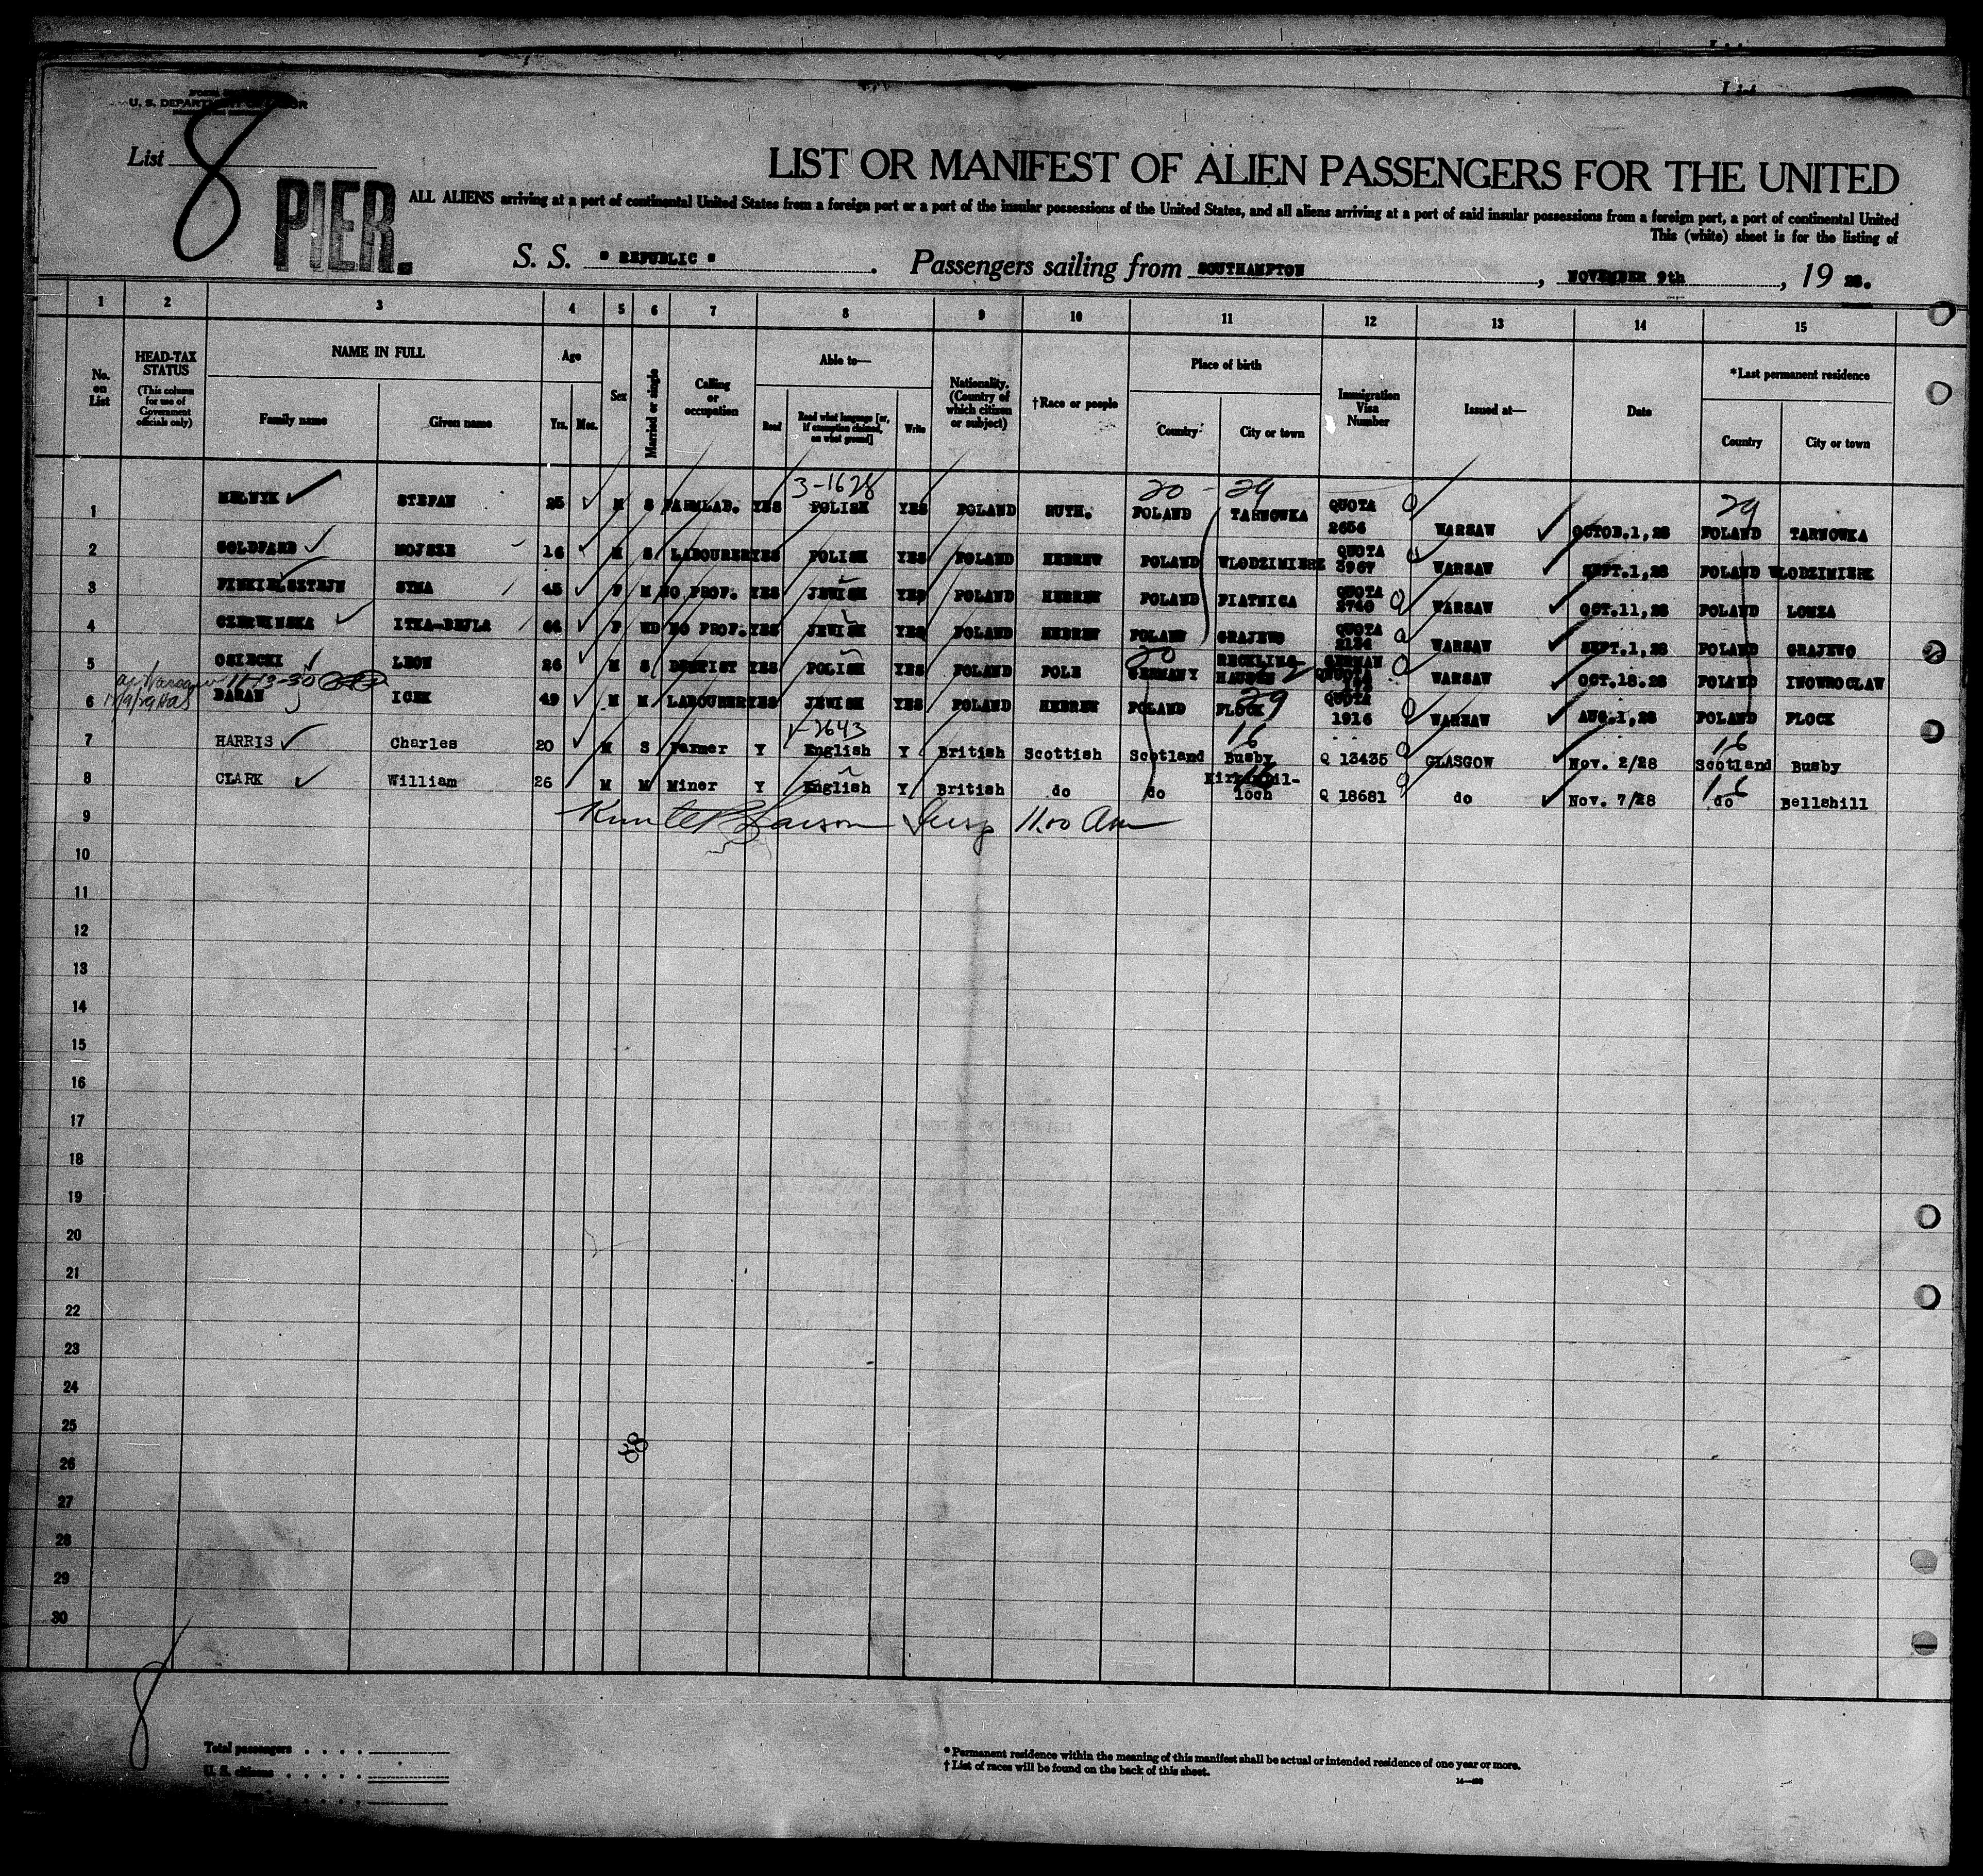 U. S. DEPARTMENT OF LABOR
List 8
PIER.
LIST OR MANIFEST OF ALIEN PASSENGERS FOR THE UNITED
ALL ALIENS arriving at a port of continental United States from a foreign port or a port of the insular possessions of the United States, and all aliens arriving at a port of said insular possessions from a foreign port, a port of continental United
This (white) sheet is for the listing of
S. S. " REPUBLIC " . Passengers sailing from SOUTHAMPTON , NOVEMBER 9th , 19 28.
1 2 3 4 5 6 7 8 9 10 11 12 13 14 15
No. on List
HEAD-TAX STATUS (This column for use of Government officials only)
NAME IN FULL
Family name Given name
Age Yrs. Mos.
Sex
Married or single
Calling or occupation
Able to—
Read Read what language [or, if exemption claimed, on what ground] Write
Nationality. (Country of which citizen or subject)
†Race or people
Place of birth
Country City or town
Immigration Visa Number
Issued at—
Date
*Last permanent residence
Country City or town
3-1628 20 - 29 29
1 MELNYK STEFAN 25 M S FARMLAB. YES POLISH YES POLAND RUTH. POLAND TARNOWKA QUOTA 2656 WARSAW OCTOB.1,28 POLAND TARNOWKA
2 GOLDFARB MOJSZE 16 M S LABOURER YES POLISH YES POLAND HEBREW POLAND WLODZIMIERZ QUOTA 3967 WARSAW SEPT.1,28 POLAND WLODZIMIERZ
3 FINKIELSZTEJN SYMA 45 F M NO PROF. YES JEWISH YES POLAND HEBREW POLAND PIATNICA QUOTA 2740 WARSAW OCT.11,28 POLAND LOMZA
4 CZERWINSKA ITKA-BEJLA 64 F WD NO PROF. YES JEWISH YES POLAND HEBREW POLAND GRAJEWO QUOTA 2124 WARSAW SEPT.1,28 POLAND GRAJEWO
20
5 OSIECKI LEON 26 M S DENTIST YES POLISH YES POLAND POLE GERMANY RECKLING-HAUSEN GERMAN QUOTA WARSAW OCT.18.28 POLAND INOWROCLAW
11-13-30
29
6 BARAN ICEK 49 M M LABOURER YES JEWISH YES POLAND HEBREW POLAND PLOCK QUOTA 1916 WARSAW AUG.1,28 POLAND PLOCK
2643 16 16
7 HARRIS Charles 20 M S Farmer Y English Y British Scottish Scotland Busby Q 13435 GLASGOW Nov. 2/28 Scotland Busby
16 16
8 CLARK William 26 M M Miner Y English Y British do do Kirkintil-loch Q 18681 do Nov. 7/28 do Bellshill
9 11.00 Am
10
11
12
13
14
15
16
17
18
19
20
21
22
23
24
25
26
27
28
29
30
88
8
Total passengers
U. S. citizens
* Permanent residence within the meaning of this manifest shall be actual or intended residence of one year or more.
† List of races will be found on the back of this sheet.